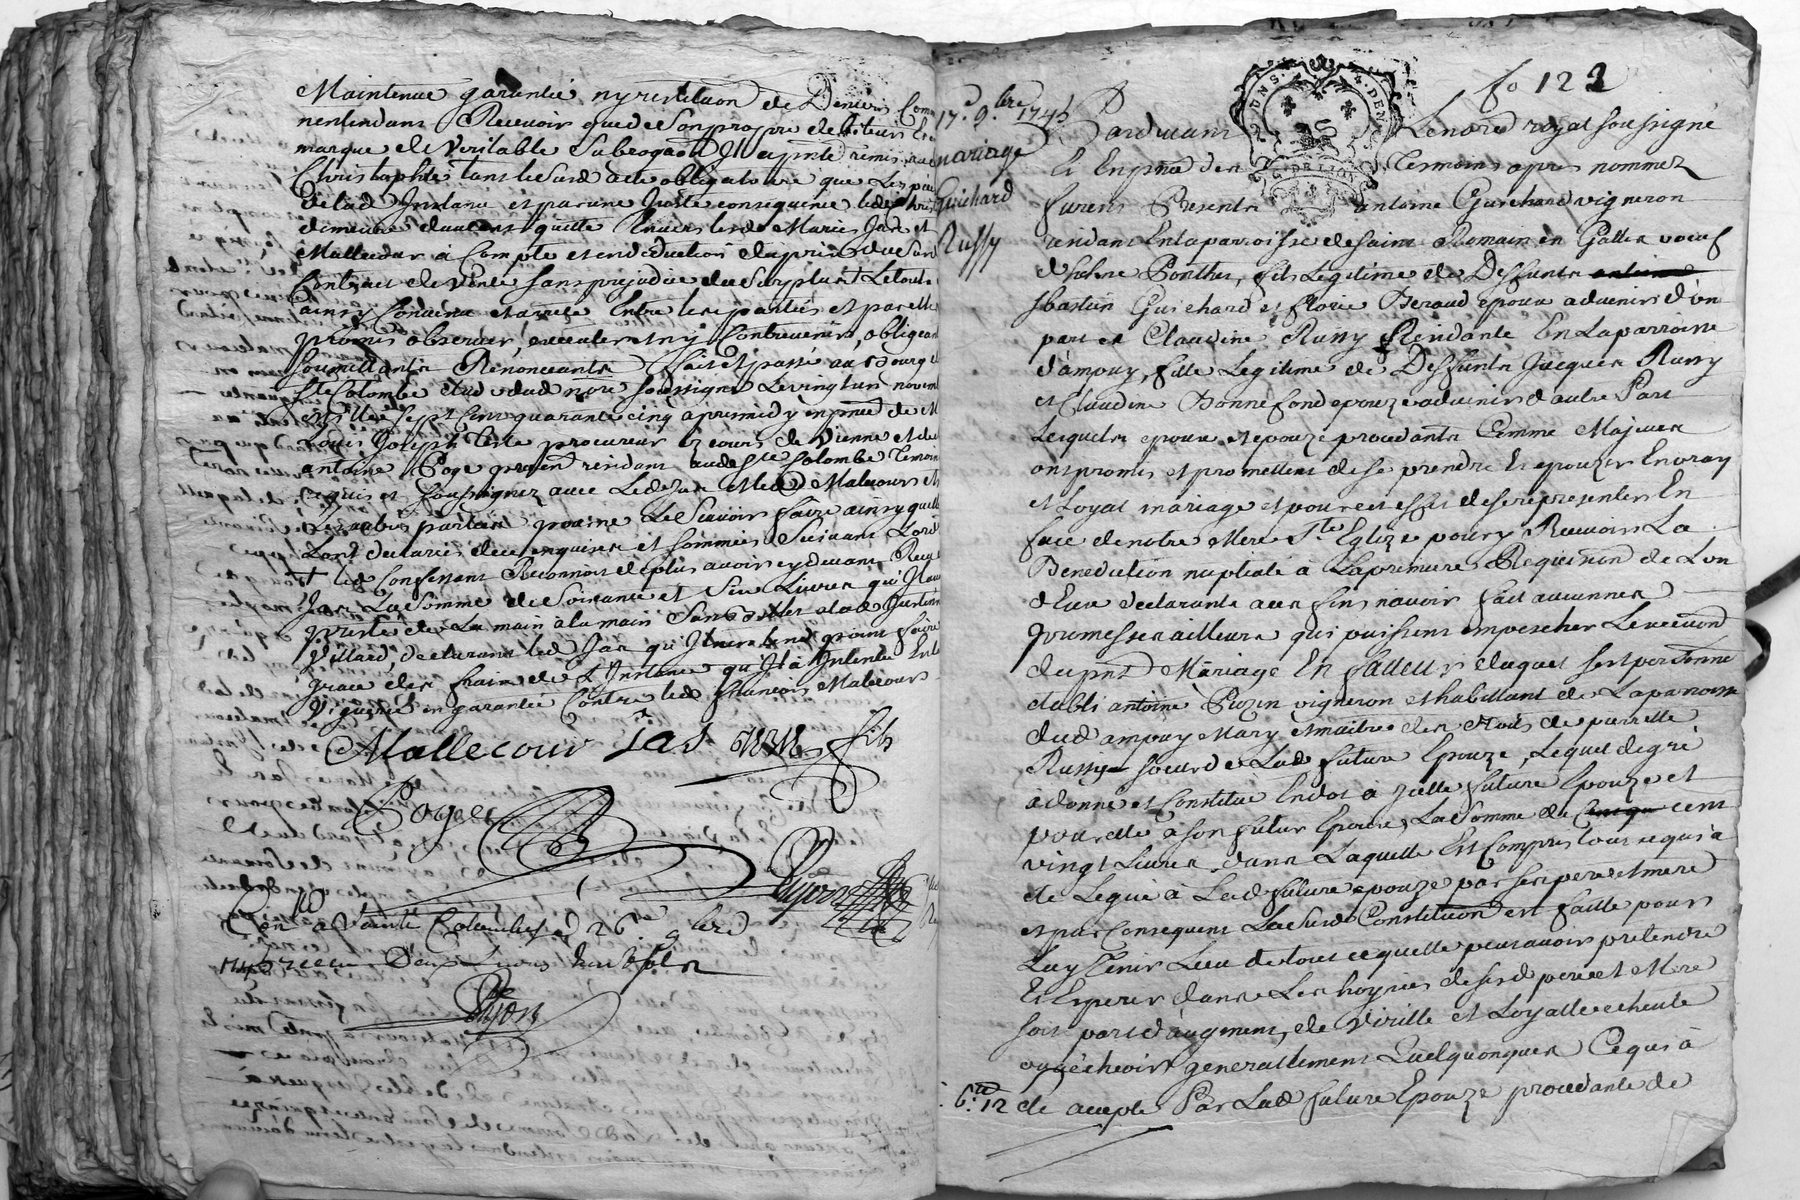 Maintenue garantie ny restitution de Deniers
nentendant Recevoir que de son propre debiteur
marque de veritable Subrogaon Il a pnte remis
Christophle tant le Susd acte obligatoire que Les
de lad Instance et par une Juste consequence led
demeure daucens quitte Envers lesd Maries Jas et
Mallecour à Compte et en deduction du prix du Susd
Contract de vente sans prejudice du Surplus Le tout
ainsy Convenu et arreté Entre les parties et par elle
promis observer, executer et ny Contrevenir, obligeant
soumettants Renonceants fait et passé au Bourg
Ste Colombe Etude dud nore soussigné Le vingt un novem
mille sept Cent quarante cinq apres midy en pnce de
Louis Joseph Teste procureur Ez cours de Vienne et de
antoine Poge resident aud Ste Colombe Temoins
requis et soussignez avec Led Jas et led Malecour et
Les autres parties pour ne Le Scavoir faire ainsy quelle
Lont declaré de ce enquises et sommées Suivant Lord
led Confessant Reconnoit de plus avoir cy devant Reçu
Jas La Somme de Soixante et Six Livres qu'Il
preste de La main à la main
Villard, declarant led Jas qu'Il
grace des fraix de L'Instance qu'Il à Intentée
Viguerie en garantie Contre led francois Malecour
Mallecour Jas fils
Poge
Pijon
Conlé a Sainte Colombe le 26me 9bre
1745 receu Deux Livres huit sols
Pijon
fo 122
17e 9bre 1745
mariage
Guichard
Russy
Pardevant Le nore royal soussigné
Et En pnce des Temoins apres nommez
furent Presents antoine Guichard vigneron
residant En la parroisse de Saint Romain en Gallex voeuf
de Ponthus, fils Legitime de Deffunts antoine
sbastien Guichard et flore Beraud epoux advenir d'un
part et Claudine Russy Residante En La parroisse
d'ampuy, fille Legitime de Deffunts Jacques Russy
et Claudine Bonnefond epouze advenir d'autre Part
Lesquels epoux et epouze procedants Comme Majeurs
ont promis et promettent de se prendre Et epouzer En vray
et Loyal mariage et pour cet effet de se representer En
face de notre Mere Ste Eglize pour y Recevoir La
Benediction nuptiale à La premiere Requisition de L'un
d'Eux declarants aux fins n'avoir fait aucunnes
promesses ailleurs qui puissent empescher Le
du pnt Mariage En faveur duquel sest personne
etabli antoine Rozin vigneron et habittant de La parroisse
dud ampuy Mary et maitre des droits de pierrette
Russy soeur de Lad future Epouze, Lequel de gré
a donné et Constitué En dot à Icelle future Epouze et
pour elle à son futur Epoux, La Somme de cent
vingt Livres, dans Laquelle Est Compris tout ce qui à
eté Legué à Lad future epouze par ses pere et mere
et par Consequent La Susd Constitution est faitte pour
Luy Tenir Lieu de tout ce quelle peut avoir pretendre
Et Esperer dans Les hoyries de sesd pere et Mere
soit part d'augment, de virille et Loyalle echeute
ou à echeoir generallement Quelquonques Ce qui à
eté accepté Par Lad future Epouze procedante de